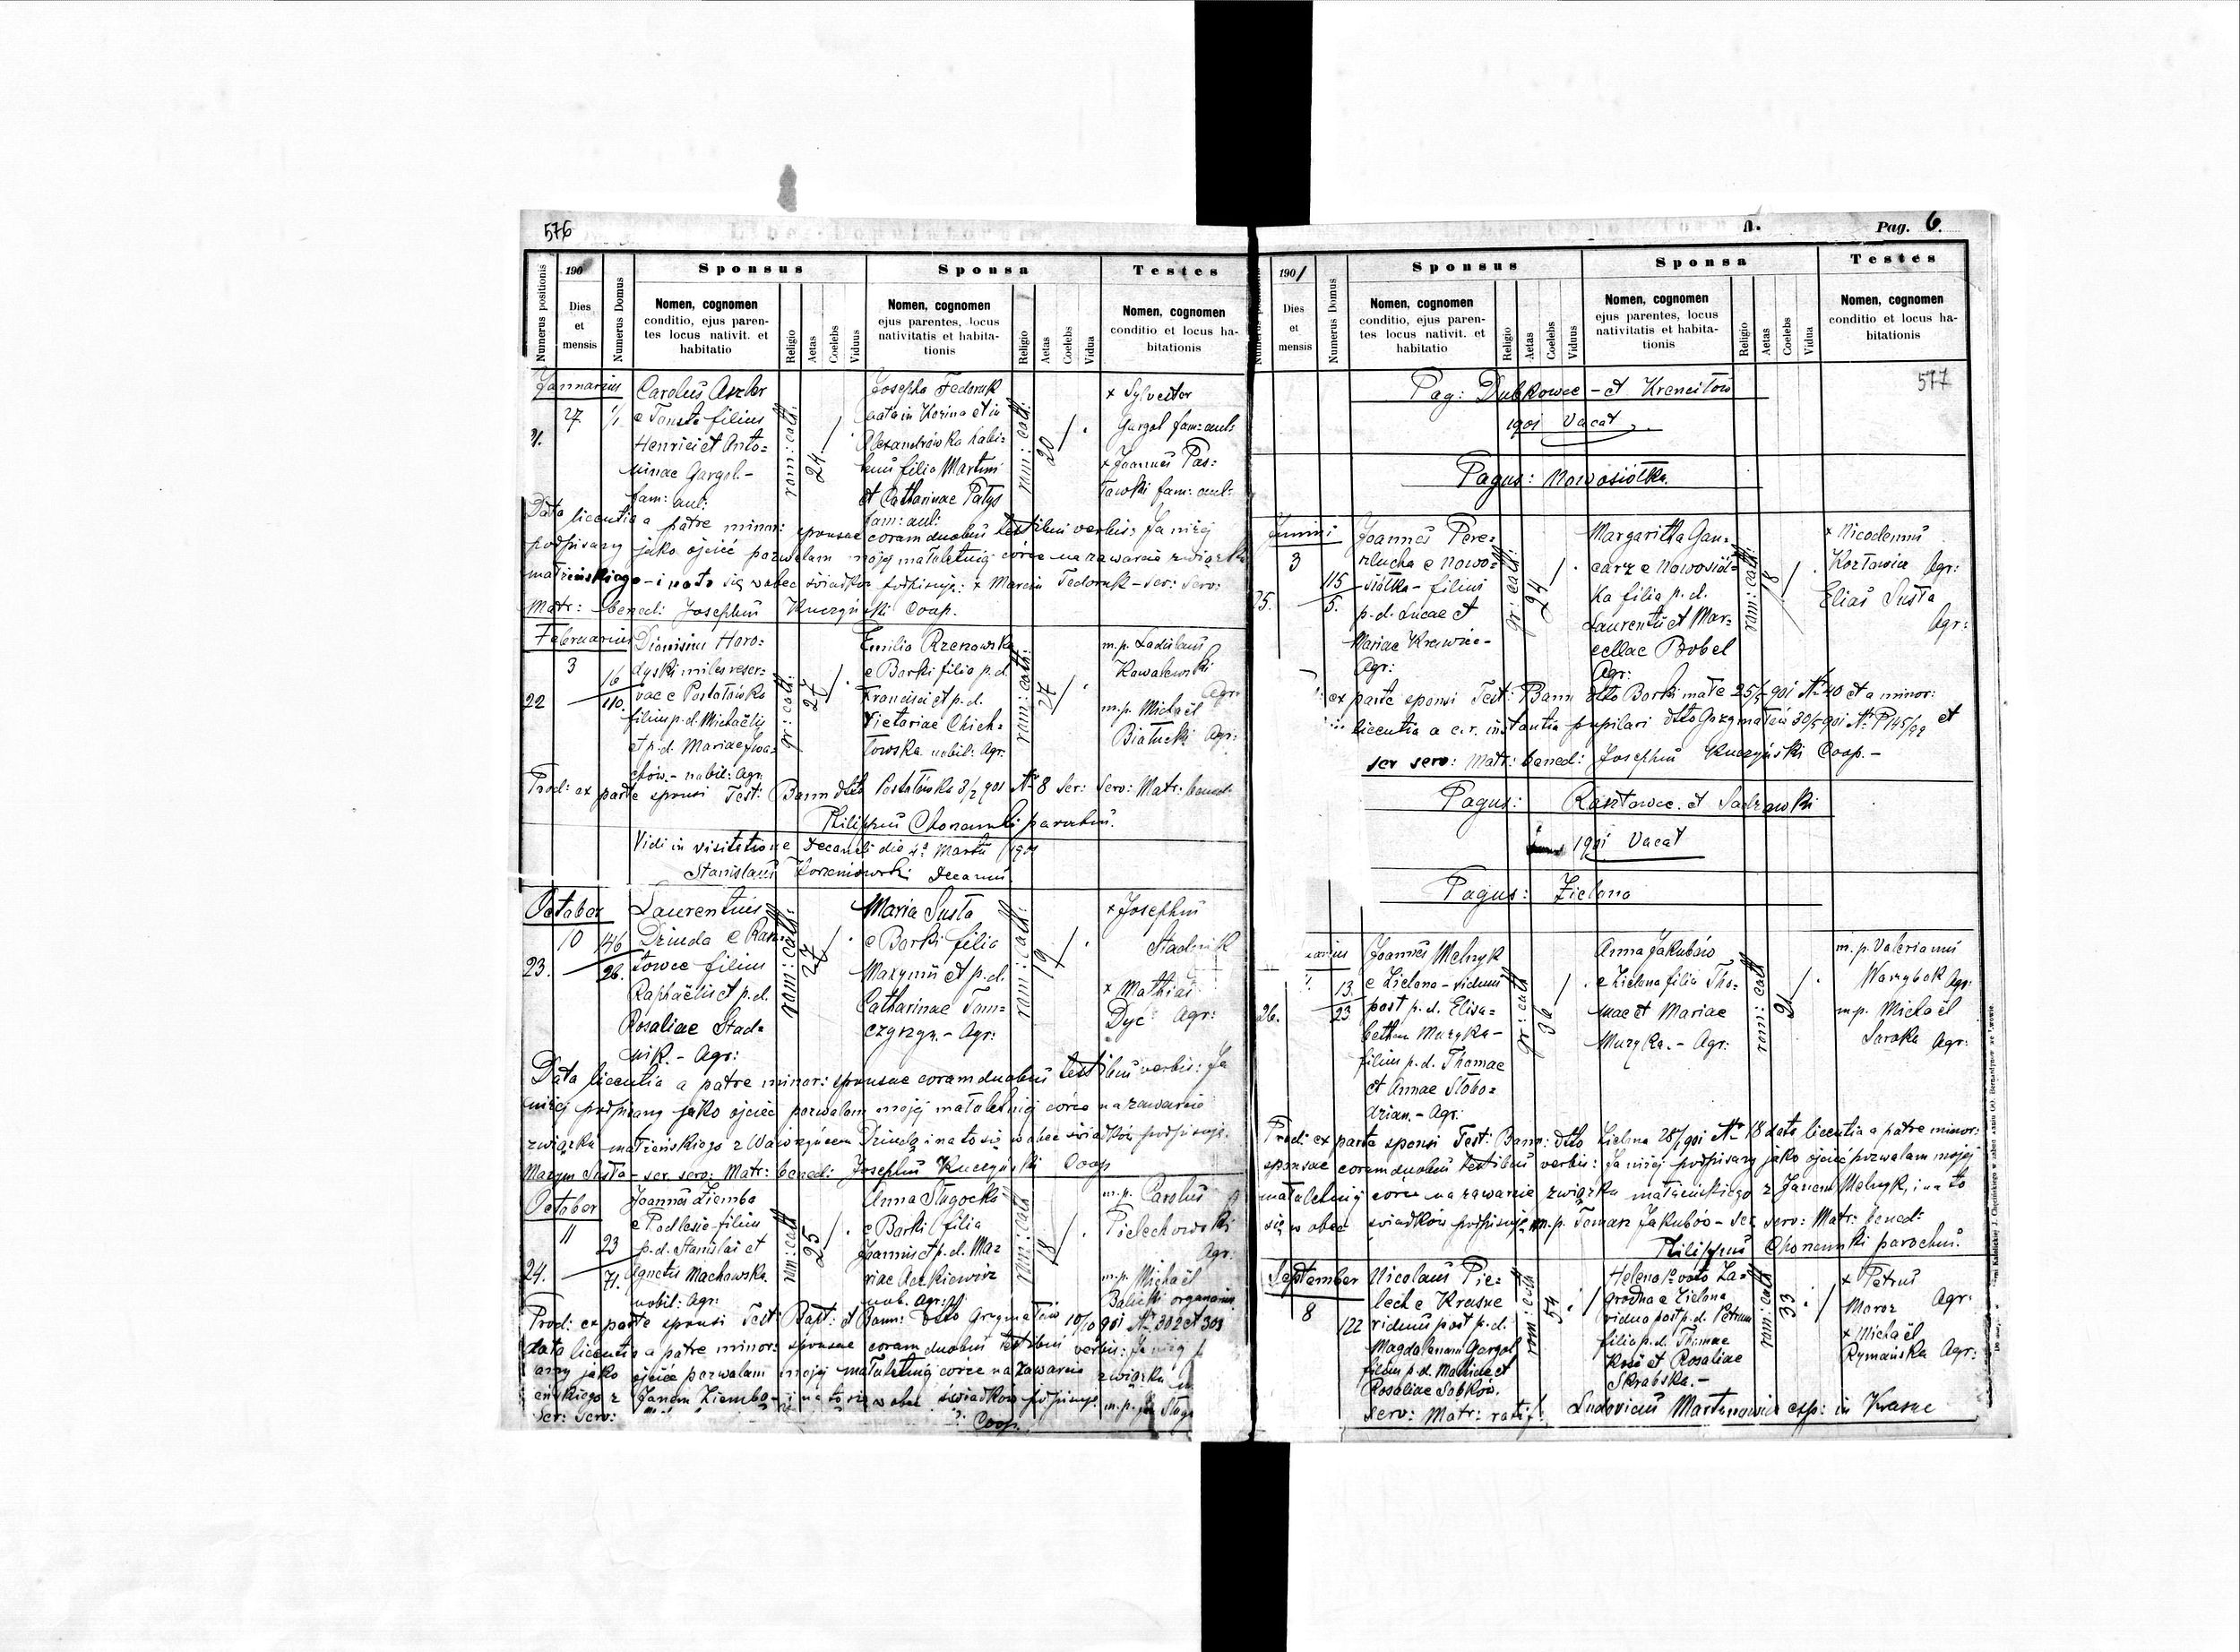 576
Numerus positionis
190
Dies
et
mensis
Numerus Domus
Sponsus
Nomen, cognomen
conditio, ejus paren-
tes locus nativit. et
habitatio
Religio
Aetas
Coelebs
Viduus
Sponsa
Nomen, cognomen
ejus parentes, locus
nativitatis et habita-
tionis
Religio
Aetas
Coelebs
Vidua
Testes
Nomen, cognomen
conditio et locus ha-
bitationis
Januarius
27
1/1
Carolus Aszler
e Touste filius
Henrici et Anto=
ninae Gargol.-
fam: aul:
rom: cath:
24
Josepha Fedoruk
nata in Kozina et in
Alexandrówka habi=
tans filia Martini
et Catharinae Patys
fam: aul:
rom: cath:
20
+ Sylvester
Gargol fam: aul:
+ Joannes Pas=
ławski fam: aul:
Data licentia a patre minor: sponsae coram duobus testibus verbis: Ja niżej
podpisany jako ojciec pozwalam mojej małoletniej córce na zawarcie związku
małżeńskiego - i na to się wobec świadków podpisuję: + Marcin Fedoruk - ser: serv:
Matr: bened: Josephus Kuczyński Coop.
Februarius
3
22
16
110.
Dionisius Horo=
dyski miles reser=
vae e Postołówka
filius p. d. Michaëlis
et p. d. Mariae Iwa=
chów.- nobil: Agr.
gr: cath:
27
Emilia Rzenowska
e Borki filia p. d.
Francisci et p. d.
Victoriae Chich=
łowska nobil: Agr:
rom: cath:
27
m. p. Ladislaus
Kowalewski
Agr:
m. p. Michaël
Białucki Agr:
Prod: ex parte sponsi Test: Bann dtto Postołówka 3/2 901 Nr 8 Ser: Serv: Matr: bened:
Philippus Chonamski parochus.
Vidi in visitatione Decanali die 4a Martii 1901
Stanislaus Korzeniowski Decanus
October
10
23.
146
26.
Laurentius
Dziuda e Rasz=
towce filius
Raphaëlis et p. d.
Rosaliae Stad=
nik. - Agr:
rom: cath:
27
Maria Susła
e Borki filia
Maxymi et p. d.
Catharinae Tom=
czyszyn. - Agr:
rom: cath:
19
+ Josephus
Stadnik
+ Mathias
Dyć Agr:
Data licentia a patre minor: sponsae coram duobus testibus verbis: Ja
niżej podpisany jako ojciec pozwalam mojej małoletniej córce na zawarcie
związku małżeńskiego z Wawrzyńcem Dziudą i na to się wobec świadków podpisuję.
Maxym Susła - ser. serv: Matr: bened: Josephus Kuczyński Coop
October
11
24.
23
71.
Joannes Ziemba
e Podlesie filius
p. d. Stanislai et
Agnetis Machowska.
nobil: Agr:
rom: cath
25
Anna Sługocka
e Borki filia
Joannis et p. d. Ma=
riae Ackiewicz
nob. Agr:
rom: cath
18
m. p. Carolus
Pielechowski
Agr:
m. p. Michaël
Babicki organarius
Prod: ex parte sponsi Test: Bapt: et Bann: dtto Grzymałów 10/10 901 Nr 302 et 303
data licentia a patre minor: sponsae coram duobus testibus verbis: Ja niżej
jako ojciec pozwalam mojej małoletniej córce na zawarcie związku
eńskiego z Janem Ziembą - i na to się wobec świadków podpisuję. m. p.
Ser: Serv:
Coop.
Pag. 6.
577
1901
Dies
et
mensis
Numerus Domus
Sponsus
Nomen, cognomen
conditio, ejus paren-
tes locus nativit. et
habitatio
Religio
Aetas
Coelebs
Viduus
Sponsa
Nomen, cognomen
ejus parentes, locus
nativitatis et habita-
tionis
Religio
Aetas
Coelebs
Vidua
Testes
Nomen, cognomen
conditio et locus ha-
bitationis
Pag: Dubkowce - et Krencilów
1901 Vacat
Pagus: Nowosiółka.
Junius
3
25.
115
5.
Joannes Pere=
rlucha e Nowo=
siółka - filius
p. d. Lucae et
Mariae Krawiec -
Agr:
gr: cath:
24
Margaritha Gan=
carz e Nowosiół=
ka filia p. d.
Laurentii et Mar=
cellae Bobel
Agr:
rom: cath:
18
+ Nicodemus
Kozłowicz Agr:
Elias Susła
Agr:
ex parte sponsi Test: Bann dtto Borki małe 25/5 901 Nr 40 et a minor:
licentia a c. r. instantia pupilari dtto Grzymałów 30/5 901 Nr P 145/99 et
ser serv: Matr: bened: Josephus Kuczyński Coop. -
Pagus: Rasztowce. et Sadzawki
1901 Vacat
Pagus: Zielona
26.
13.
23
Joannes Melnyk
e Zielona - viduus
post p. d. Elisa=
betham Muzyka -
filius p. d. Thomae
et Annae Słobo=
dzian. - Agr:
gr: cath
30
Anna Jakubów
e Zielona filia Tho=
mae et Mariae
Muzyka. - Agr:
rom: cath
21
m. p. Valerianus
Warzybok Agr:
m. p. Michaël
Soroka Agr:
Prod: ex parte sponsi Test: Bann: dtto Zielona 28/ 901 Nr 18 data licentia a patre minor:
sponsae coram duobus testibus verbis: Ja niżej podpisany jako ojciec pozwalam mojej
małoletniej córce na zawarcie związku małżeńskiego z Janem Melnyk, i na to
się wobec świadków podpisuję m. p. Tomasz Jakubów - ser. serv: Matr: bened:
Philippus Chonamski parochus.
September
8
122
Nicolaus Pie=
lech e Krasne
viduus post p. d.
Magdalenam Gargol
filius p. d. Mathiae et
Rosaliae Sobków.
rom: cath
54
Helena 1o voto Za=
grodna e Zielona
vidua post p. d. Petrum
filia p. d. Thomae
Koss et Rosaliae
Skrabska. -
rom: cath
33
+ Petrus
Moroz Agr:
+ Michaël
Rymańska Agr:
serv: Matr: ratif: Ludovicus Martynowicz exp: in Krasne